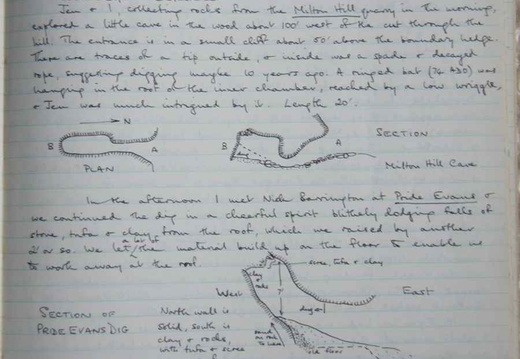 Jem & I, collecting rocks from the Milton Hill quarry in the morning,
explored a little cave in the wood about 100' west of the cut through the
hill. The entrance is in a small cliff about 50' above the boundary hedge.
There are traces of a tip outside, & inside was a spade & decayed
rope, suggesting digging maybe 10 years ago. A ringed bat was
hanging in the roof of the inner chamber, reached by a low wriggle,
& Jem was much intrigued by it. Length 20'.
N
B A
PLAN
B A
SECTION
Milton Hill Cave
In the afternoon I met Nick Barrington at Pride Evans &
we continued the dig in a cheerful spirit blithely dodging falls of
stone, tufa & clay from the roof, which we raised by another
2' or so. We let a lot of the material build up on the floor to enable us
to work away at the roof.
clay & rocks
stone, tufa & clay
West
East
7'
dug
old floor
SECTION OF
PRIDE EVANS DIG
North wall is
solid, south is
clay & rocks,
with tufa & scree